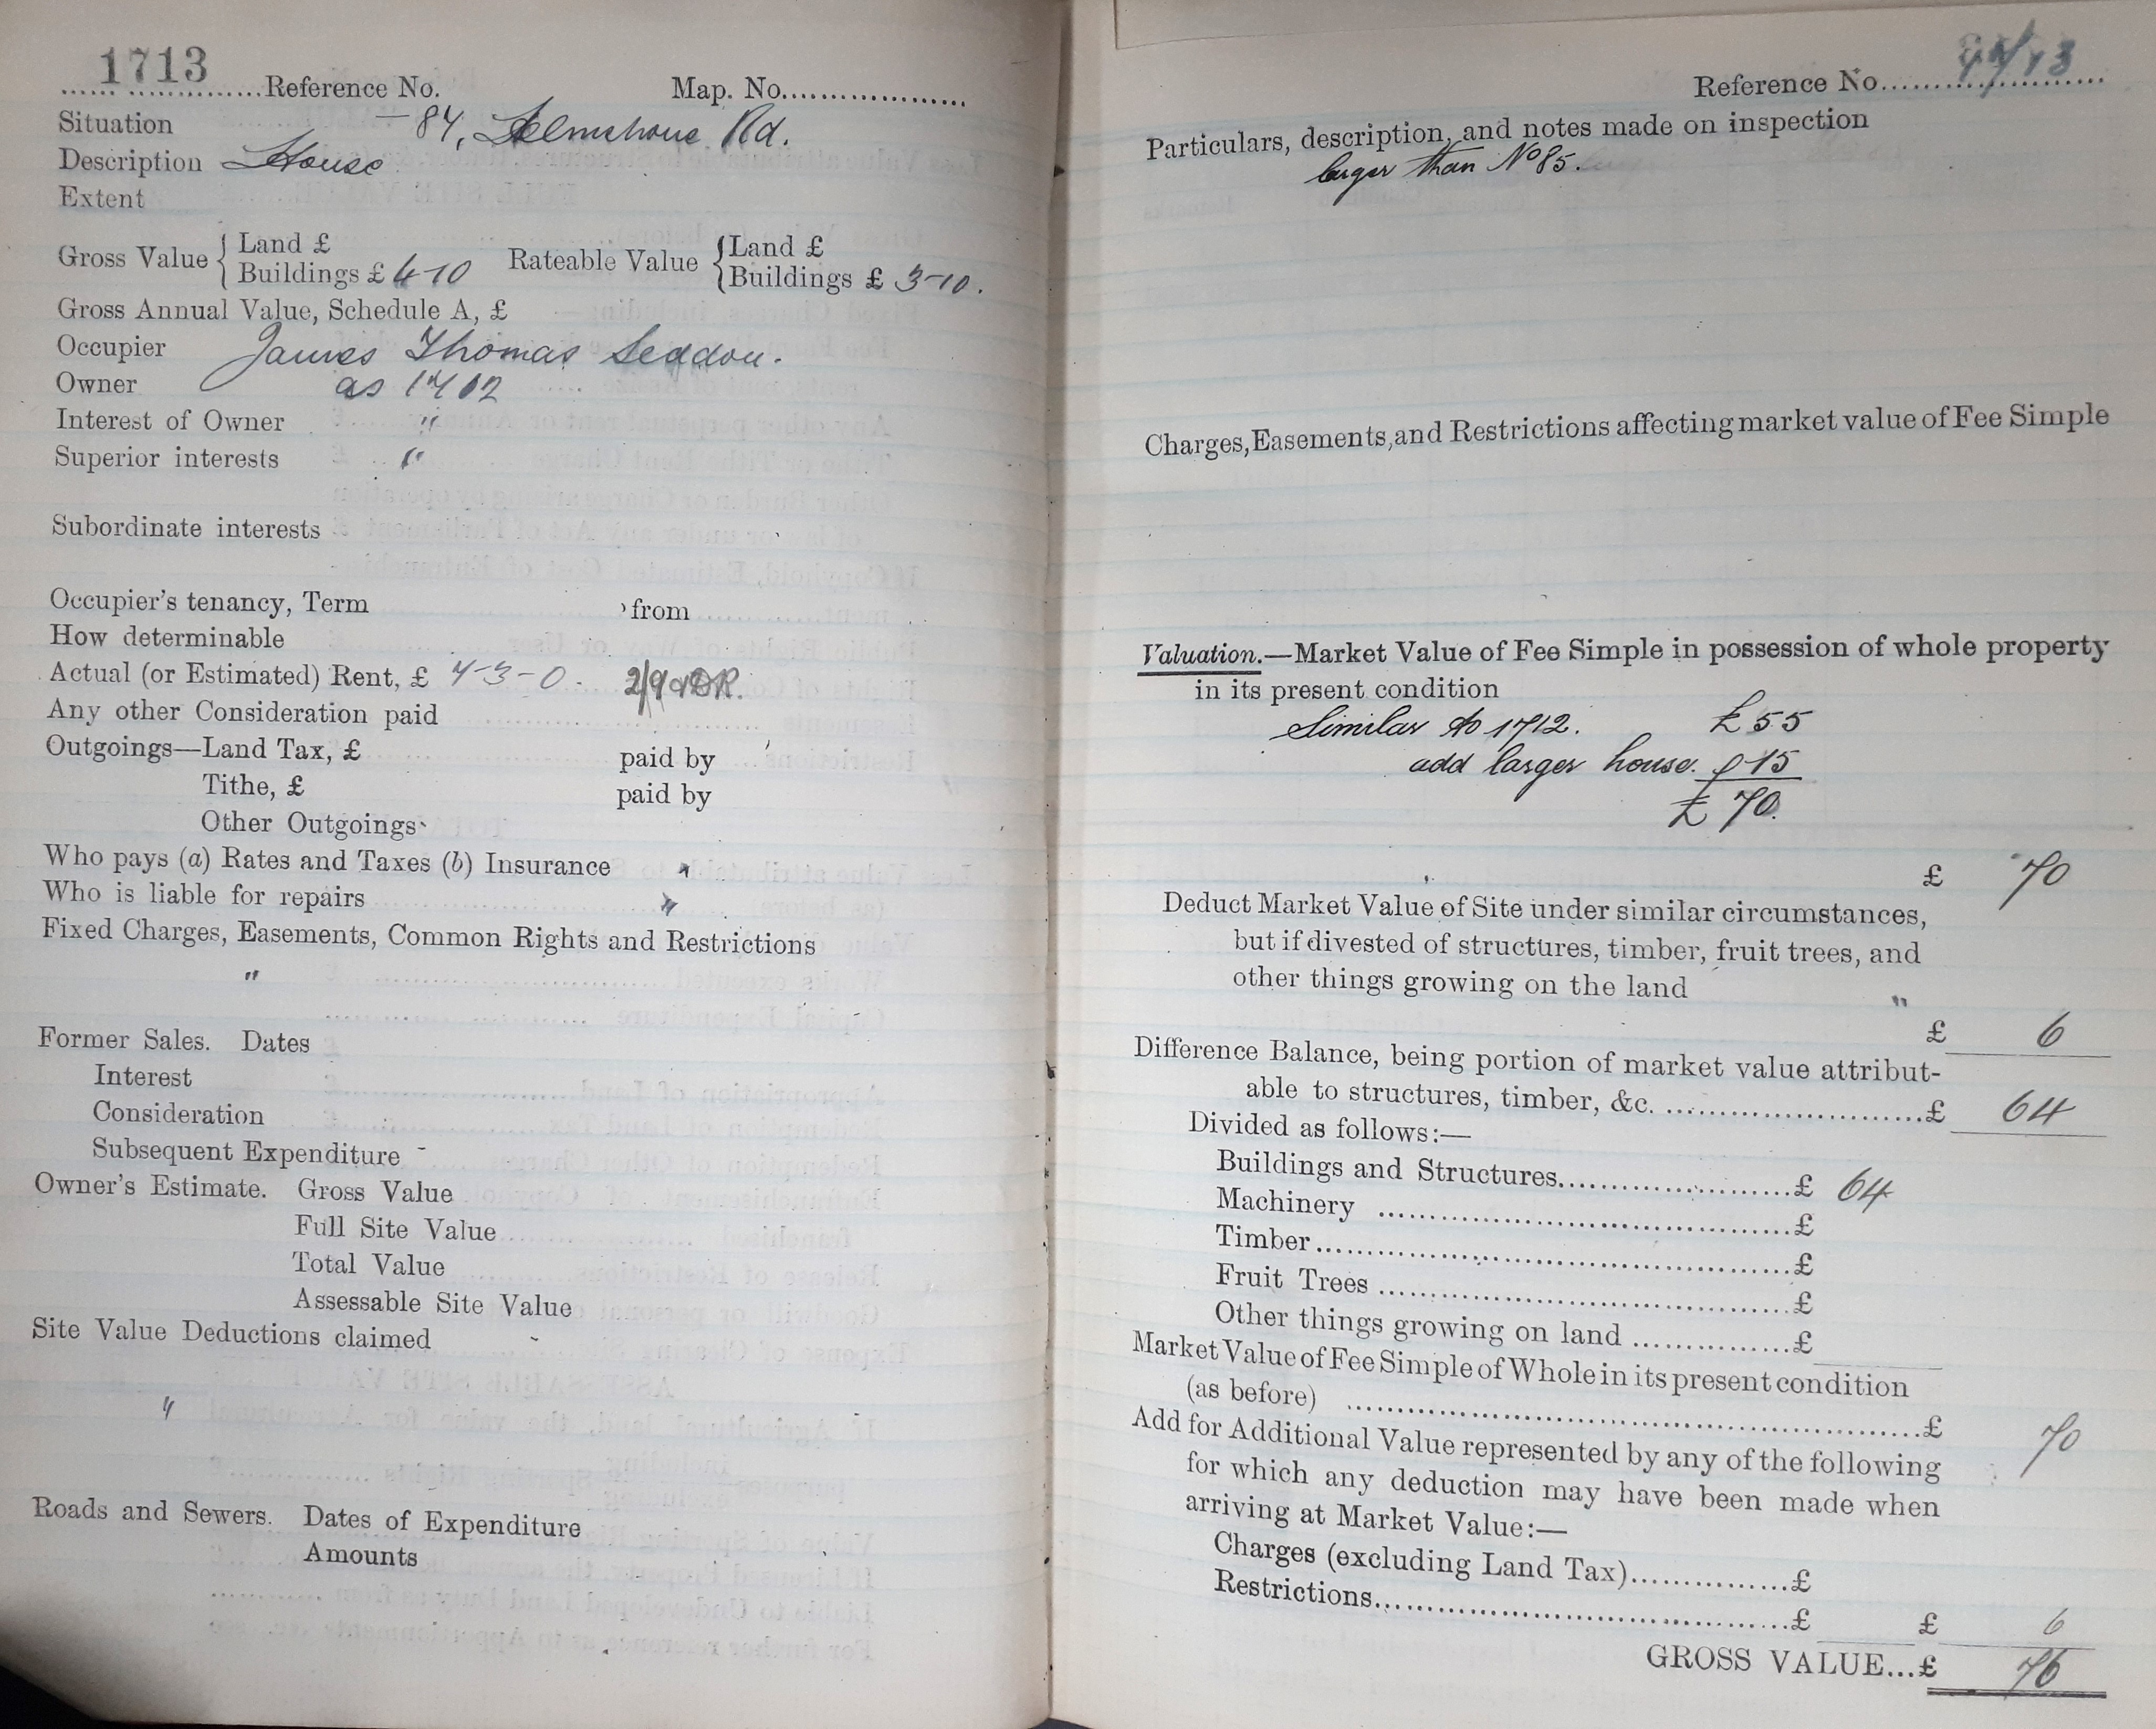 1713
Reference No. Map. No.
Situation – 84, Helmshore Rd.
Description House
Extent
Gross Value { Land £ Rateable Value { Land £
Buildings £ 4-10 Buildings £ 3-10.
Gross Annual Value, Schedule A, £
Occupier James Thomas Seddon.
Owner as 1702
Interest of Owner "
Superior interests "
Subordinate interests
Occupier's tenancy, Term from
How determinable
Actual (or Estimated) Rent, £ 4-3-0.
Any other Consideration paid
Outgoings—Land Tax, £ paid by
Tithe, £ paid by
Other Outgoings
Who pays (a) Rates and Taxes (b) Insurance "
Who is liable for repairs "
Fixed Charges, Easements, Common Rights and Restrictions
"
Former Sales. Dates
Interest
Consideration
Subsequent Expenditure
Owner's Estimate. Gross Value
Full Site Value
Total Value
Assessable Site Value
Site Value Deductions claimed
"
Roads and Sewers. Dates of Expenditure
Amounts
Reference No. 1713
Particulars, description, and notes made on inspection
larger than No 85.
Charges, Easements, and Restrictions affecting market value of Fee Simple
Valuation.—Market Value of Fee Simple in possession of whole property
in its present condition
Similar to 1712. £55
add larger house. 15
£70.
£ 70
Deduct Market Value of Site under similar circumstances,
but if divested of structures, timber, fruit trees, and
other things growing on the land "
£ 6
Difference Balance, being portion of market value attribut-
able to structures, timber, &c. £ 64
Divided as follows:—
Buildings and Structures £ 64
Machinery £
Timber £
Fruit Trees £
Other things growing on land £
Market Value of Fee Simple of Whole in its present condition
(as before) £ 70
Add for Additional Value represented by any of the following
for which any deduction may have been made when
arriving at Market Value:—
Charges (excluding Land Tax) £
Restrictions £ £ 6
GROSS VALUE...£ 76